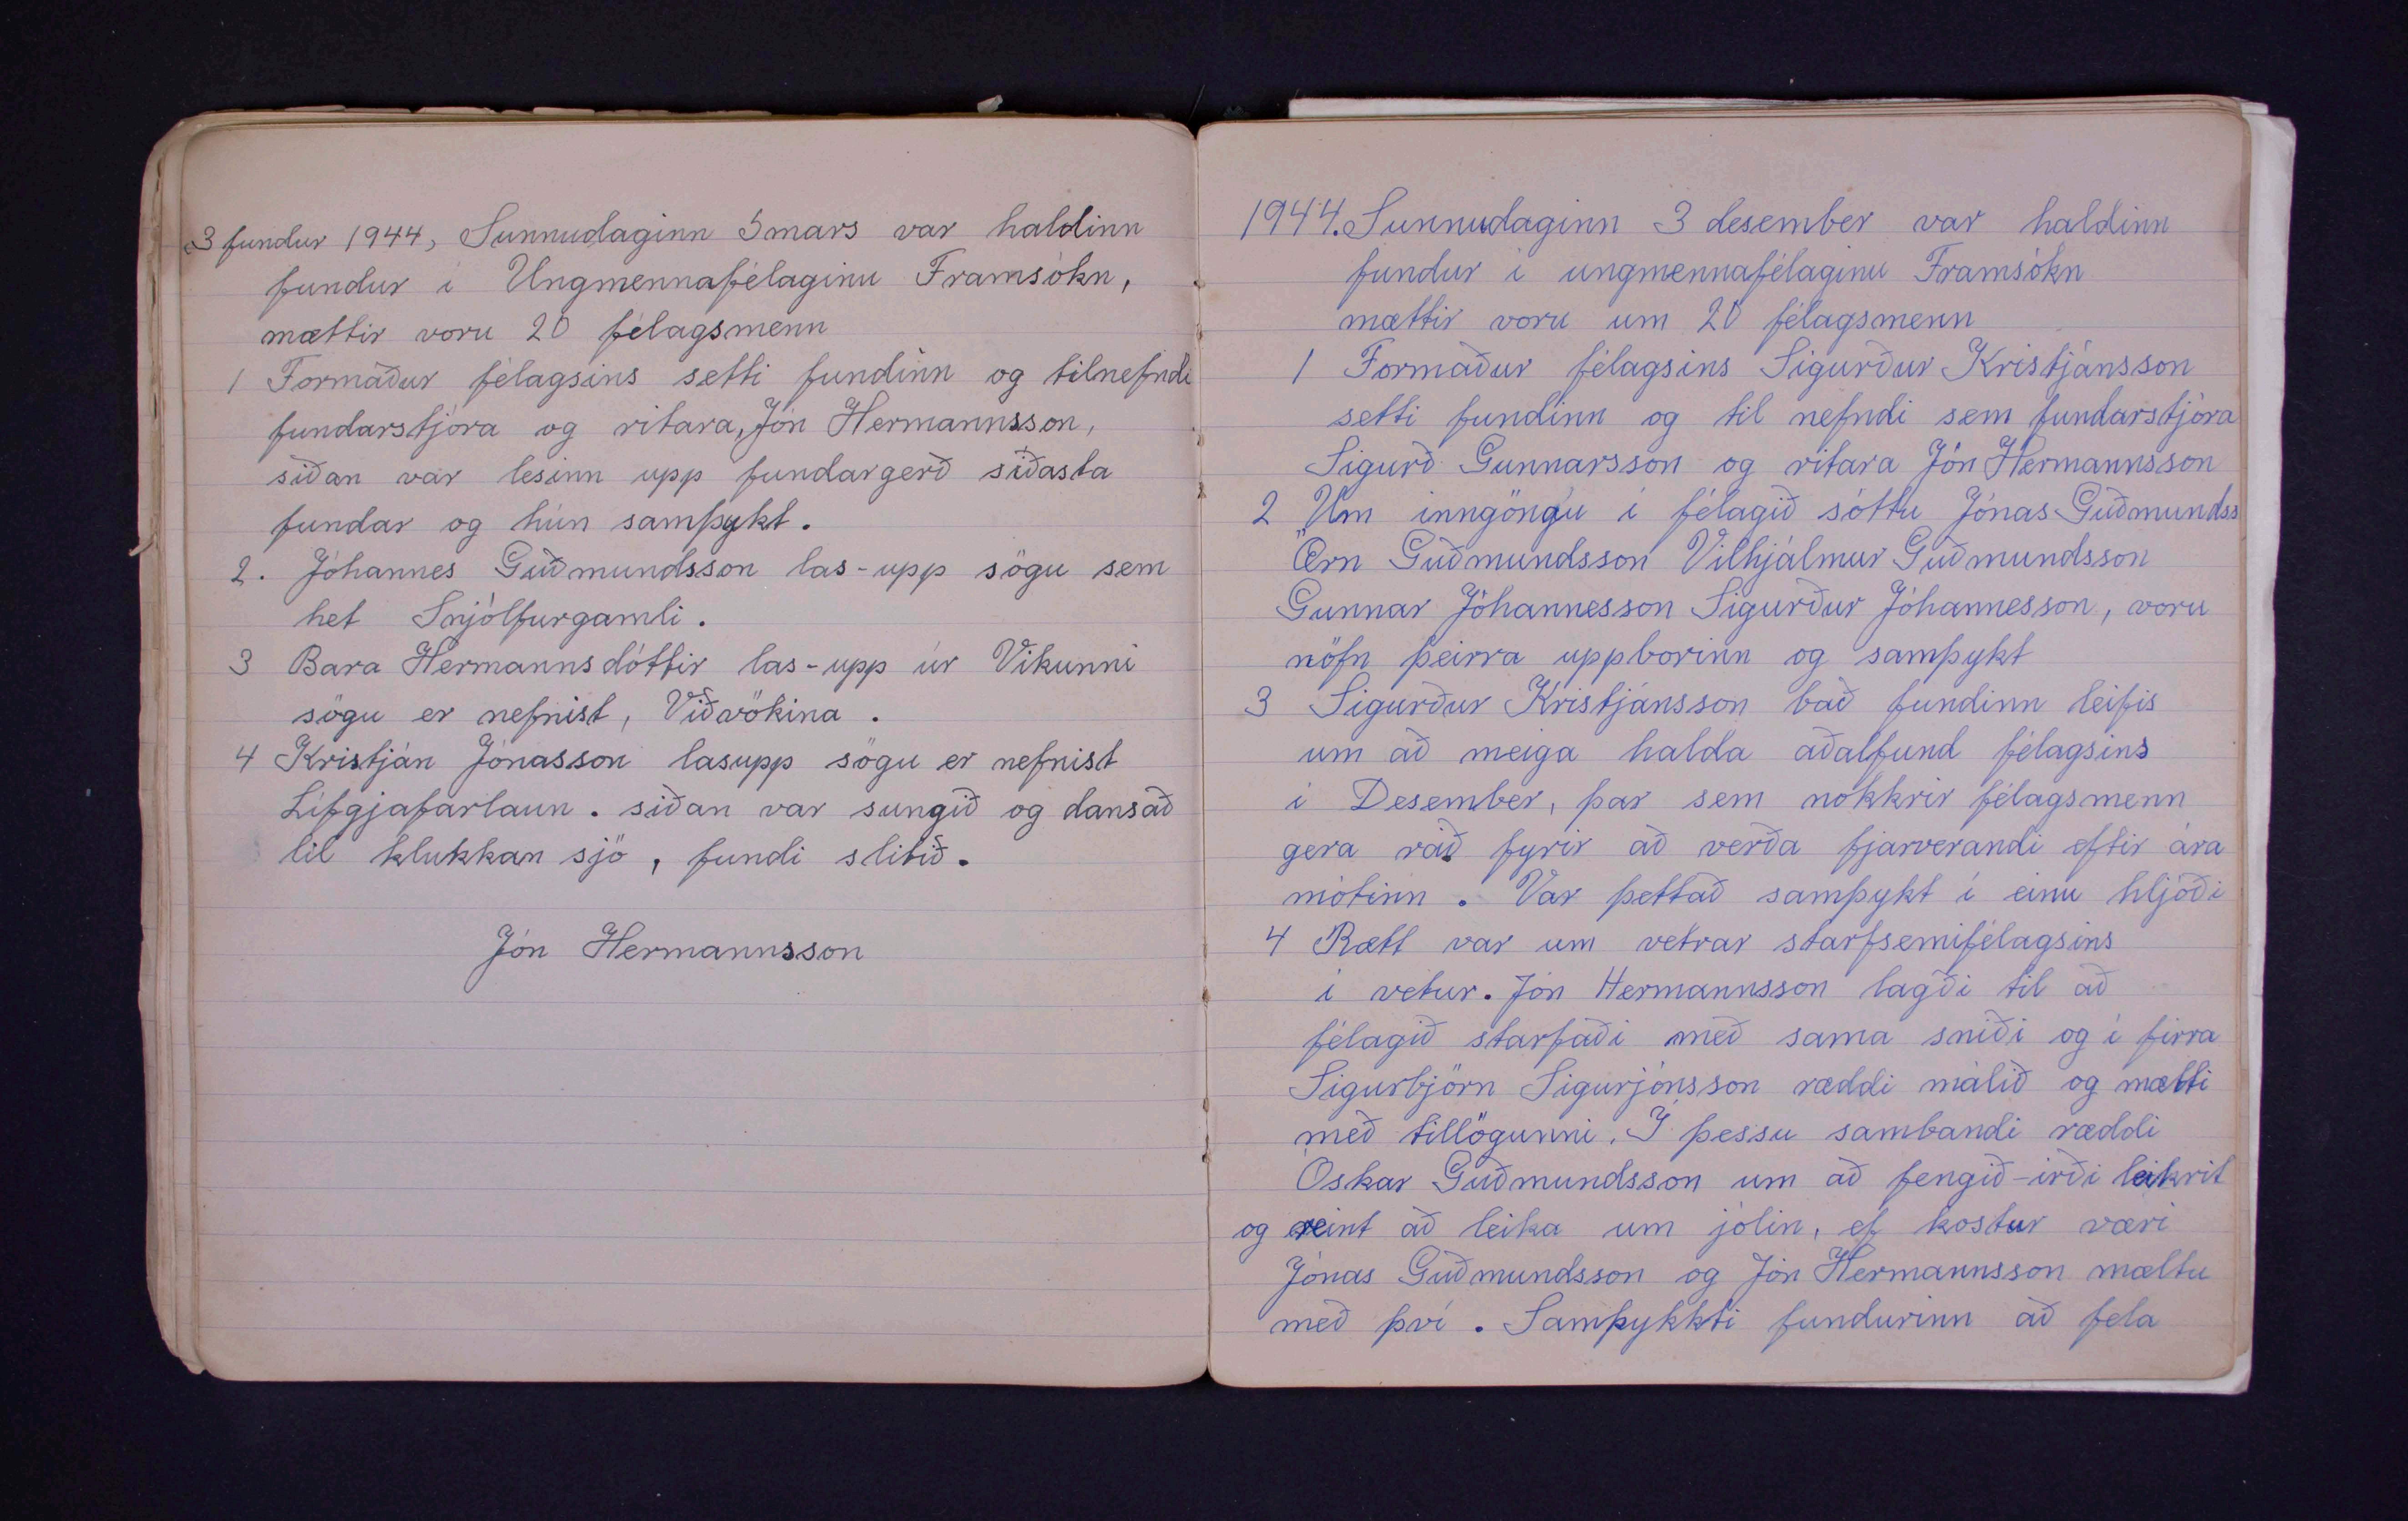 3 fundur 1944, Sunnudaginn 5 mars var haldinn
fundur í Ungmennafélaginu Framsókn,
mættir voru 20 félagsmenn
1 Formaður félagsins setti fundinn og tilnefndi
fundarstjóra og ritara, Jón Hermannsson,
síðan var lesinn upp fundargerð síðasta
fundar og hún samþykt.
2. Jóhannes Guðmundsson las-upp sögu sem
het Snjólfurgamli.
3 Bara Hermannsdóttir las-upp úr Vikunni
sögu er nefnist, Viðvökina.
4 Kristján Jónasson lasupp sögu er nefnist
Lífgjafarlaun. síðan var sungið og dansað
til klukkan sjö, fundi slitið.
Jón Hermannsson
1944. Sunnudaginn 3 desember var haldinn
fundur í ungmennafélaginu Framsókn
mættir voru um 20 félagsmenn
1 Formaður félagsins Sigurður Kristjánsson
setti fundinn og til nefndi sem fundarstjóra
Sigurð Gunnarsson og ritara Jón Hermannsson
2 Um inngöngu í félagið sóttu Jónas Guðmundss
Örn Guðmundsson Vilhjálmur Guðmundsson
Gunnar Jóhannesson Sigurður Jóhannesson, voru
nöfn þeirra uppborinn og samþykt
3 Sigurður Kristjánsson bað fundinn leifis
um að meiga halda aðalfund félagsins
í Desember, þar sem nokkrir félagsmenn
gera ráð fyrir að verða fjarverandi eftir ára
mótinn. Var þettað samþykt í einu hljóði
4 Rætt var um vetrar starfsemifélagsins
í vetur. Jón Hermannsson lagði til að
félagið starfaði með sama sniði og í firra
Sigurbjörn Sigurjónsson ræddi málið og mælti
með tillögunni. Í þessu sambandi ræddi
Óskar Guðmundsson um að fengið-irði leikrit
og reint að leika um jólin, ef kostur væri
Jónas Guðmundsson og Jón Hermannsson mæltu
með því. Samþykkti fundurinn að fela